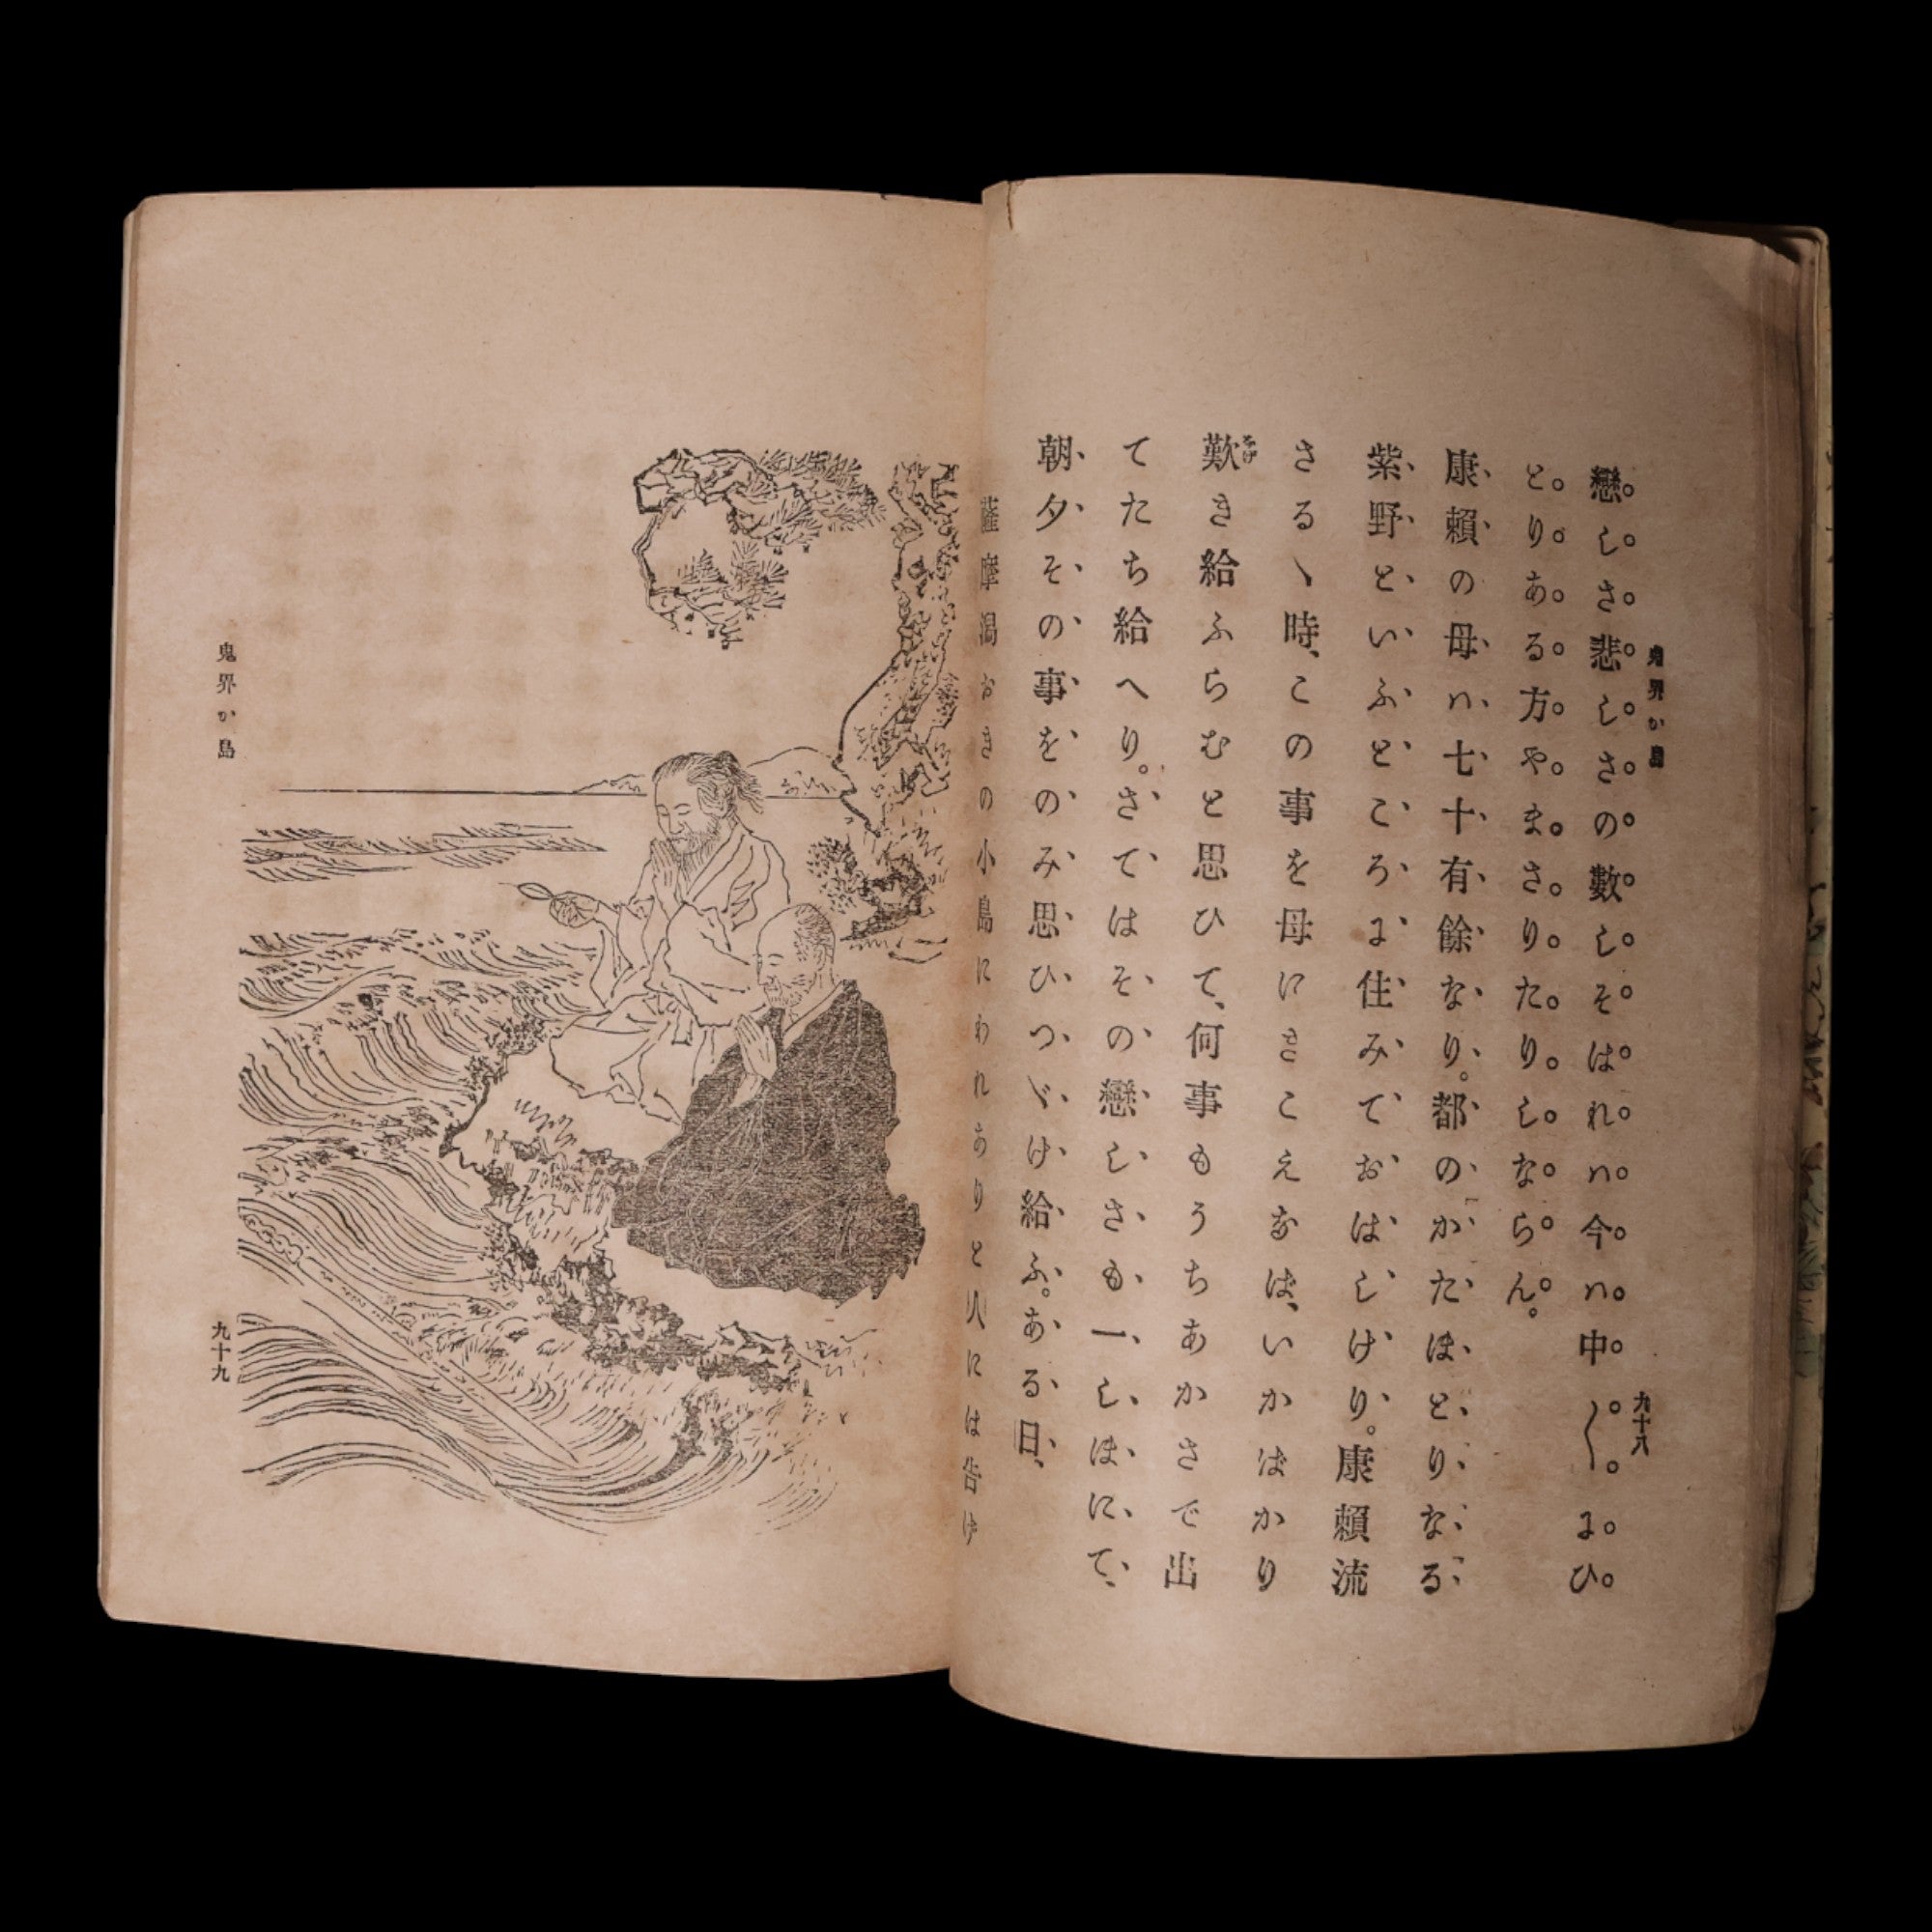 鬼界か島
九十八
戀しさ悲しさの數しそはれハ今ハ中〱にひ
とりある方やまさりたりしならん。
康賴の母ハ七十有餘なり。都のかたほとりなる
紫野といふところに住みておはしけり。康賴流
さるゝ時、この事を母にきこえなば、いかばかり
歎き給ふらむと思ひて、何事もうちあかさで出
てたち給へり。さてはその戀しさも一しほにて、
朝夕その事をのみ思ひつゞけ給ふ。ある日、
薩摩潟おきの小島にわれありと人には告け
鬼界か島
九十九